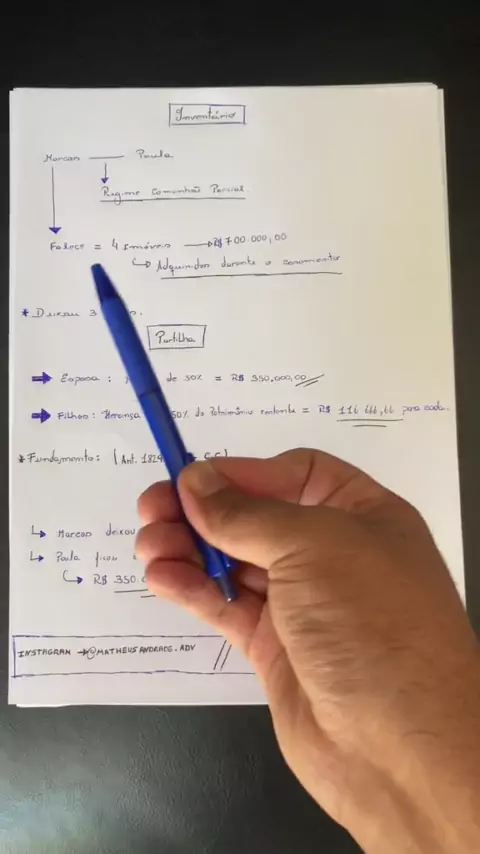 Inventário
Marcao — Paula
Regime Comunhão Parcial
Falece = 4 Imóveis → R$ 700.000,00
Adquiridos durante o casamento
* Deixou 3
Partilha
Esposa: de 50% = R$ 350.000,00
Filhos: Herança 50% do Patrimônio restante = R$ 116.666,66 para cada.
* Fundamento: (Art. 1829 C.C)
Marcao deixou
Paula ficou
R$ 350.0
INSTAGRAM → @MATHEUSANDRADE.ADV